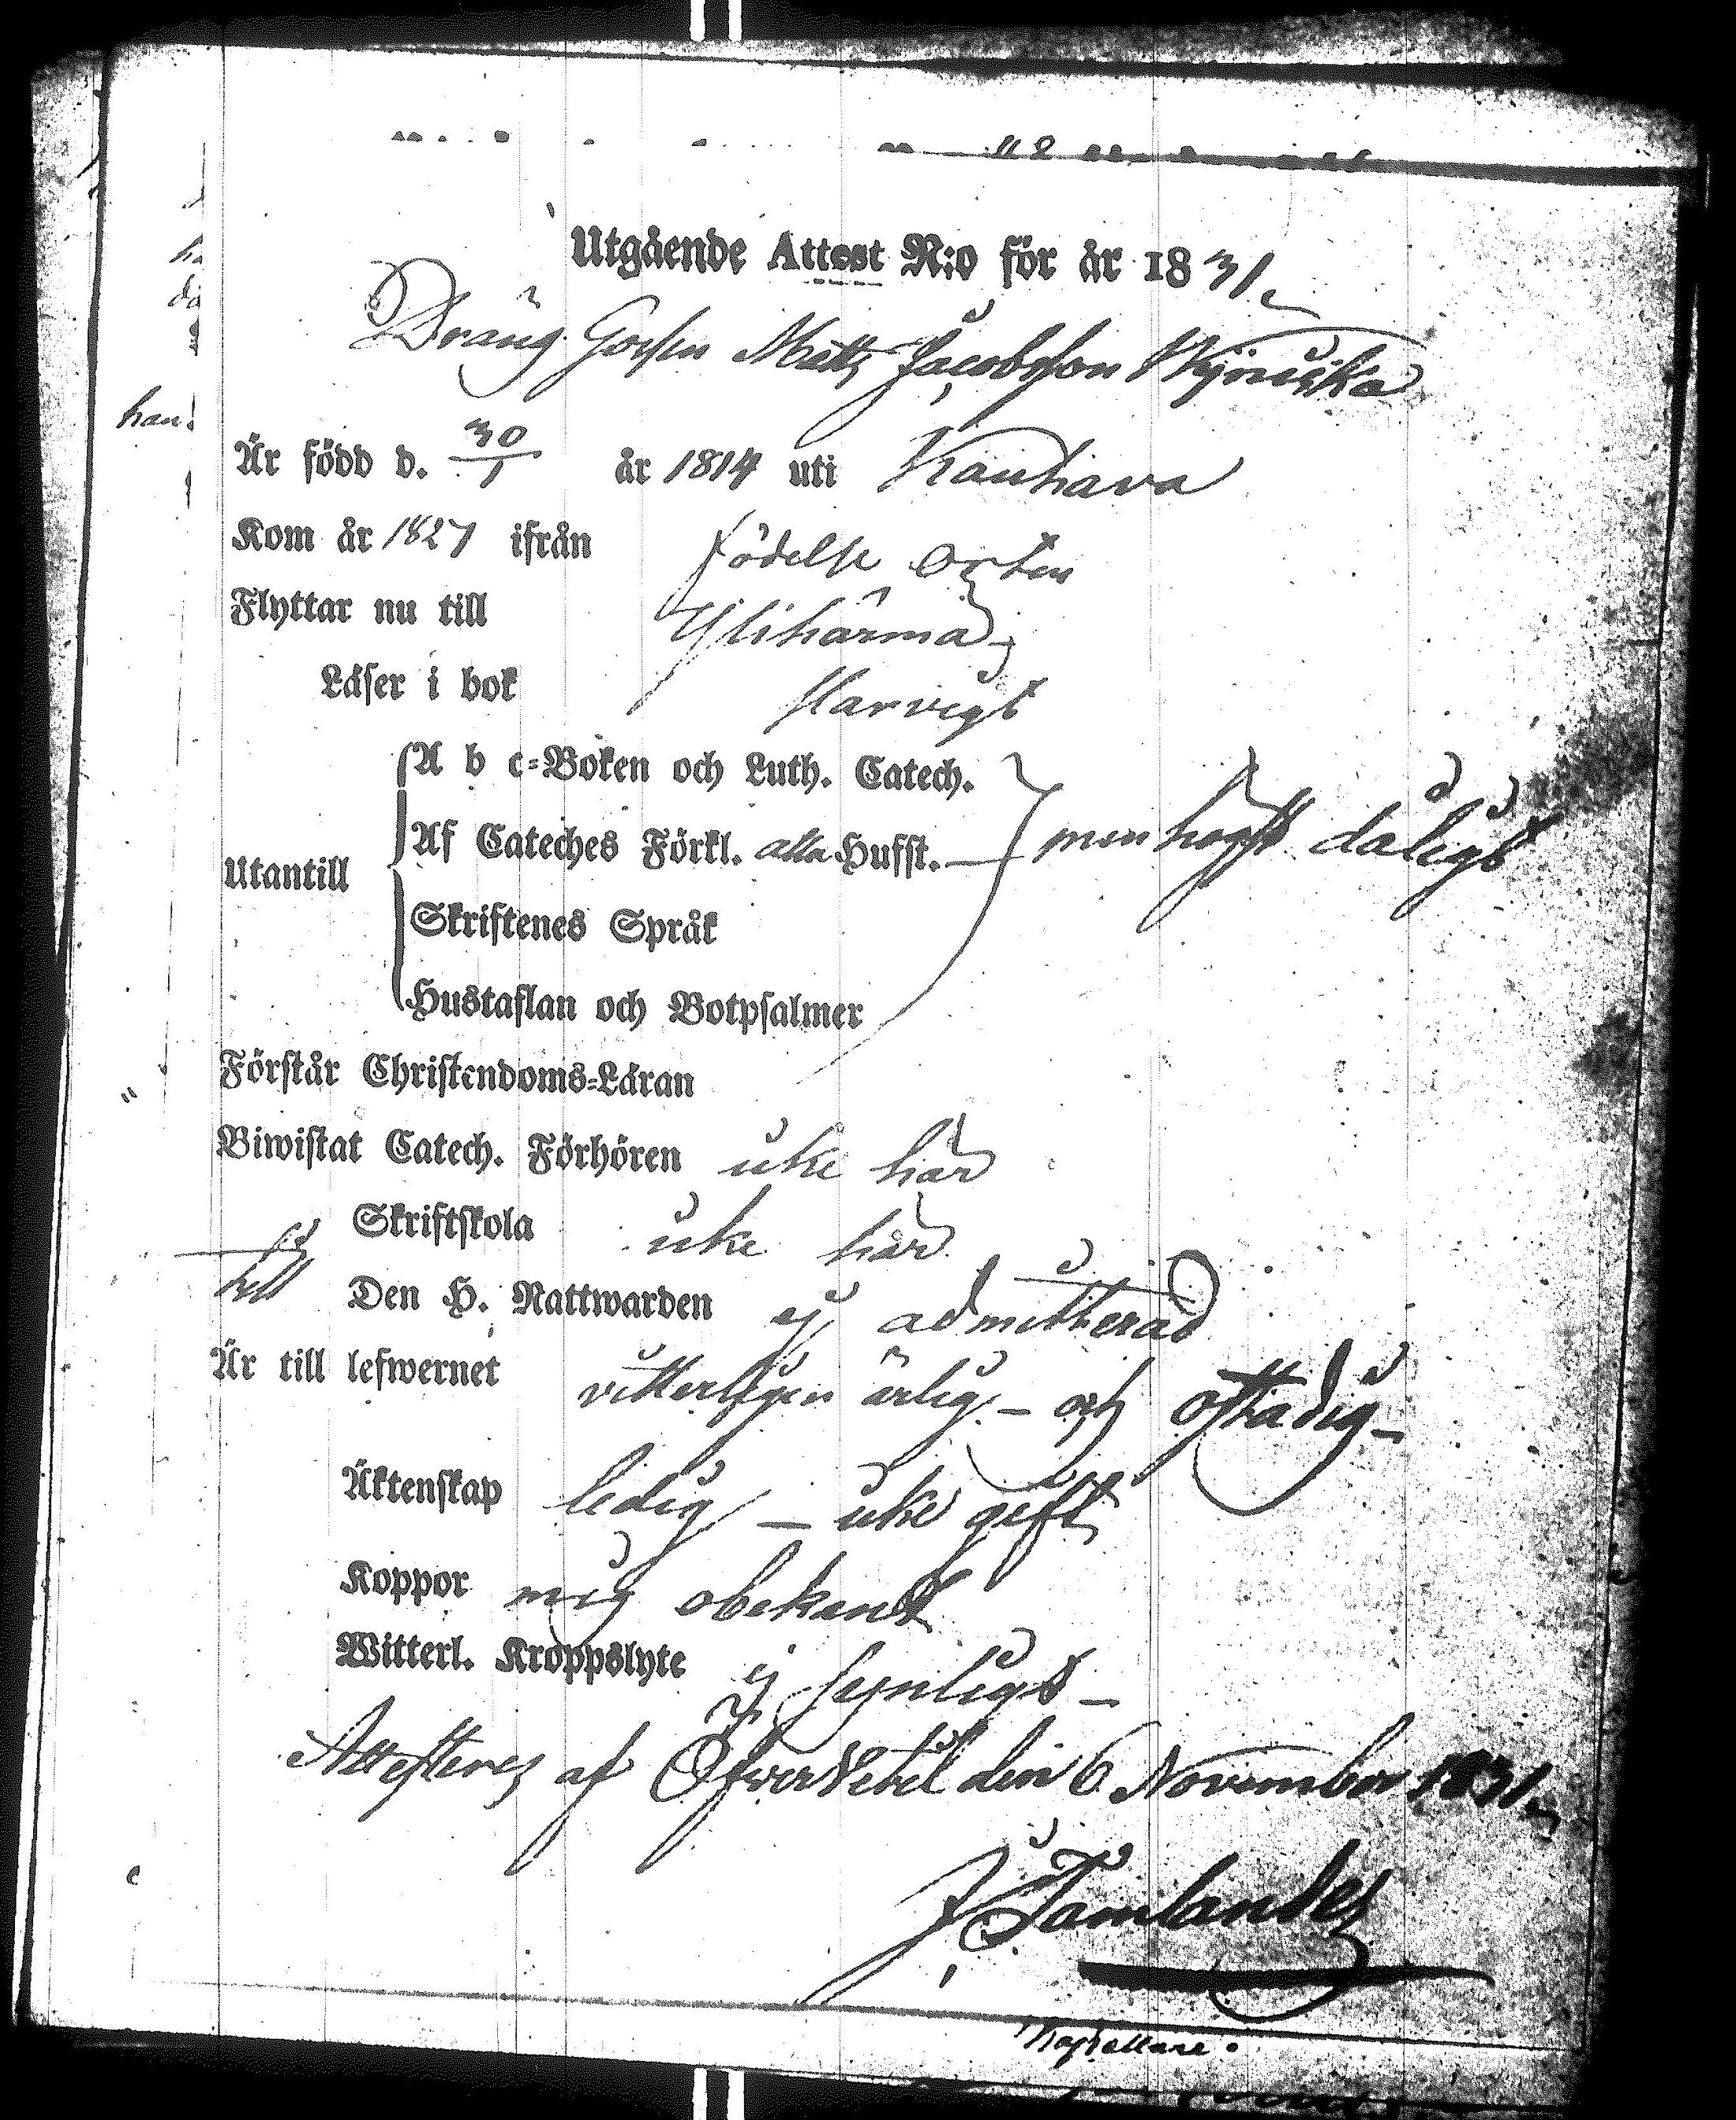 Utgående Attest N:o för år 1831
Dräng Gossen Matts Jacobsson
Är född d. 30/1 år 1814 uti Kauhava
Kom år 1827 ifrån födelse orten
Flyttar nu till Ylihärmä
Läser i bok
A b c-Boken och Luth. Catech.
Utantill Af Cateches Förkl. alla Hufst. men högst dåligt
Skriftenes Språk
Hustaflan och Botpsalmer
Förstår Christendoms-Läran
Biwistat Catech. Förhören icke här
Skriftskola icke här
Den H. Nattwarden ej admitterad
Är till lefwernet vitterligen ärlig - och ostadig -
Äktenskap ledig - icke gift
Koppor mig obekant
Witterl. Kroppslyte ej synligt -
Attesteres af Öfwer Vetil den 6 November 1831
J Tamlander
Kapellane.